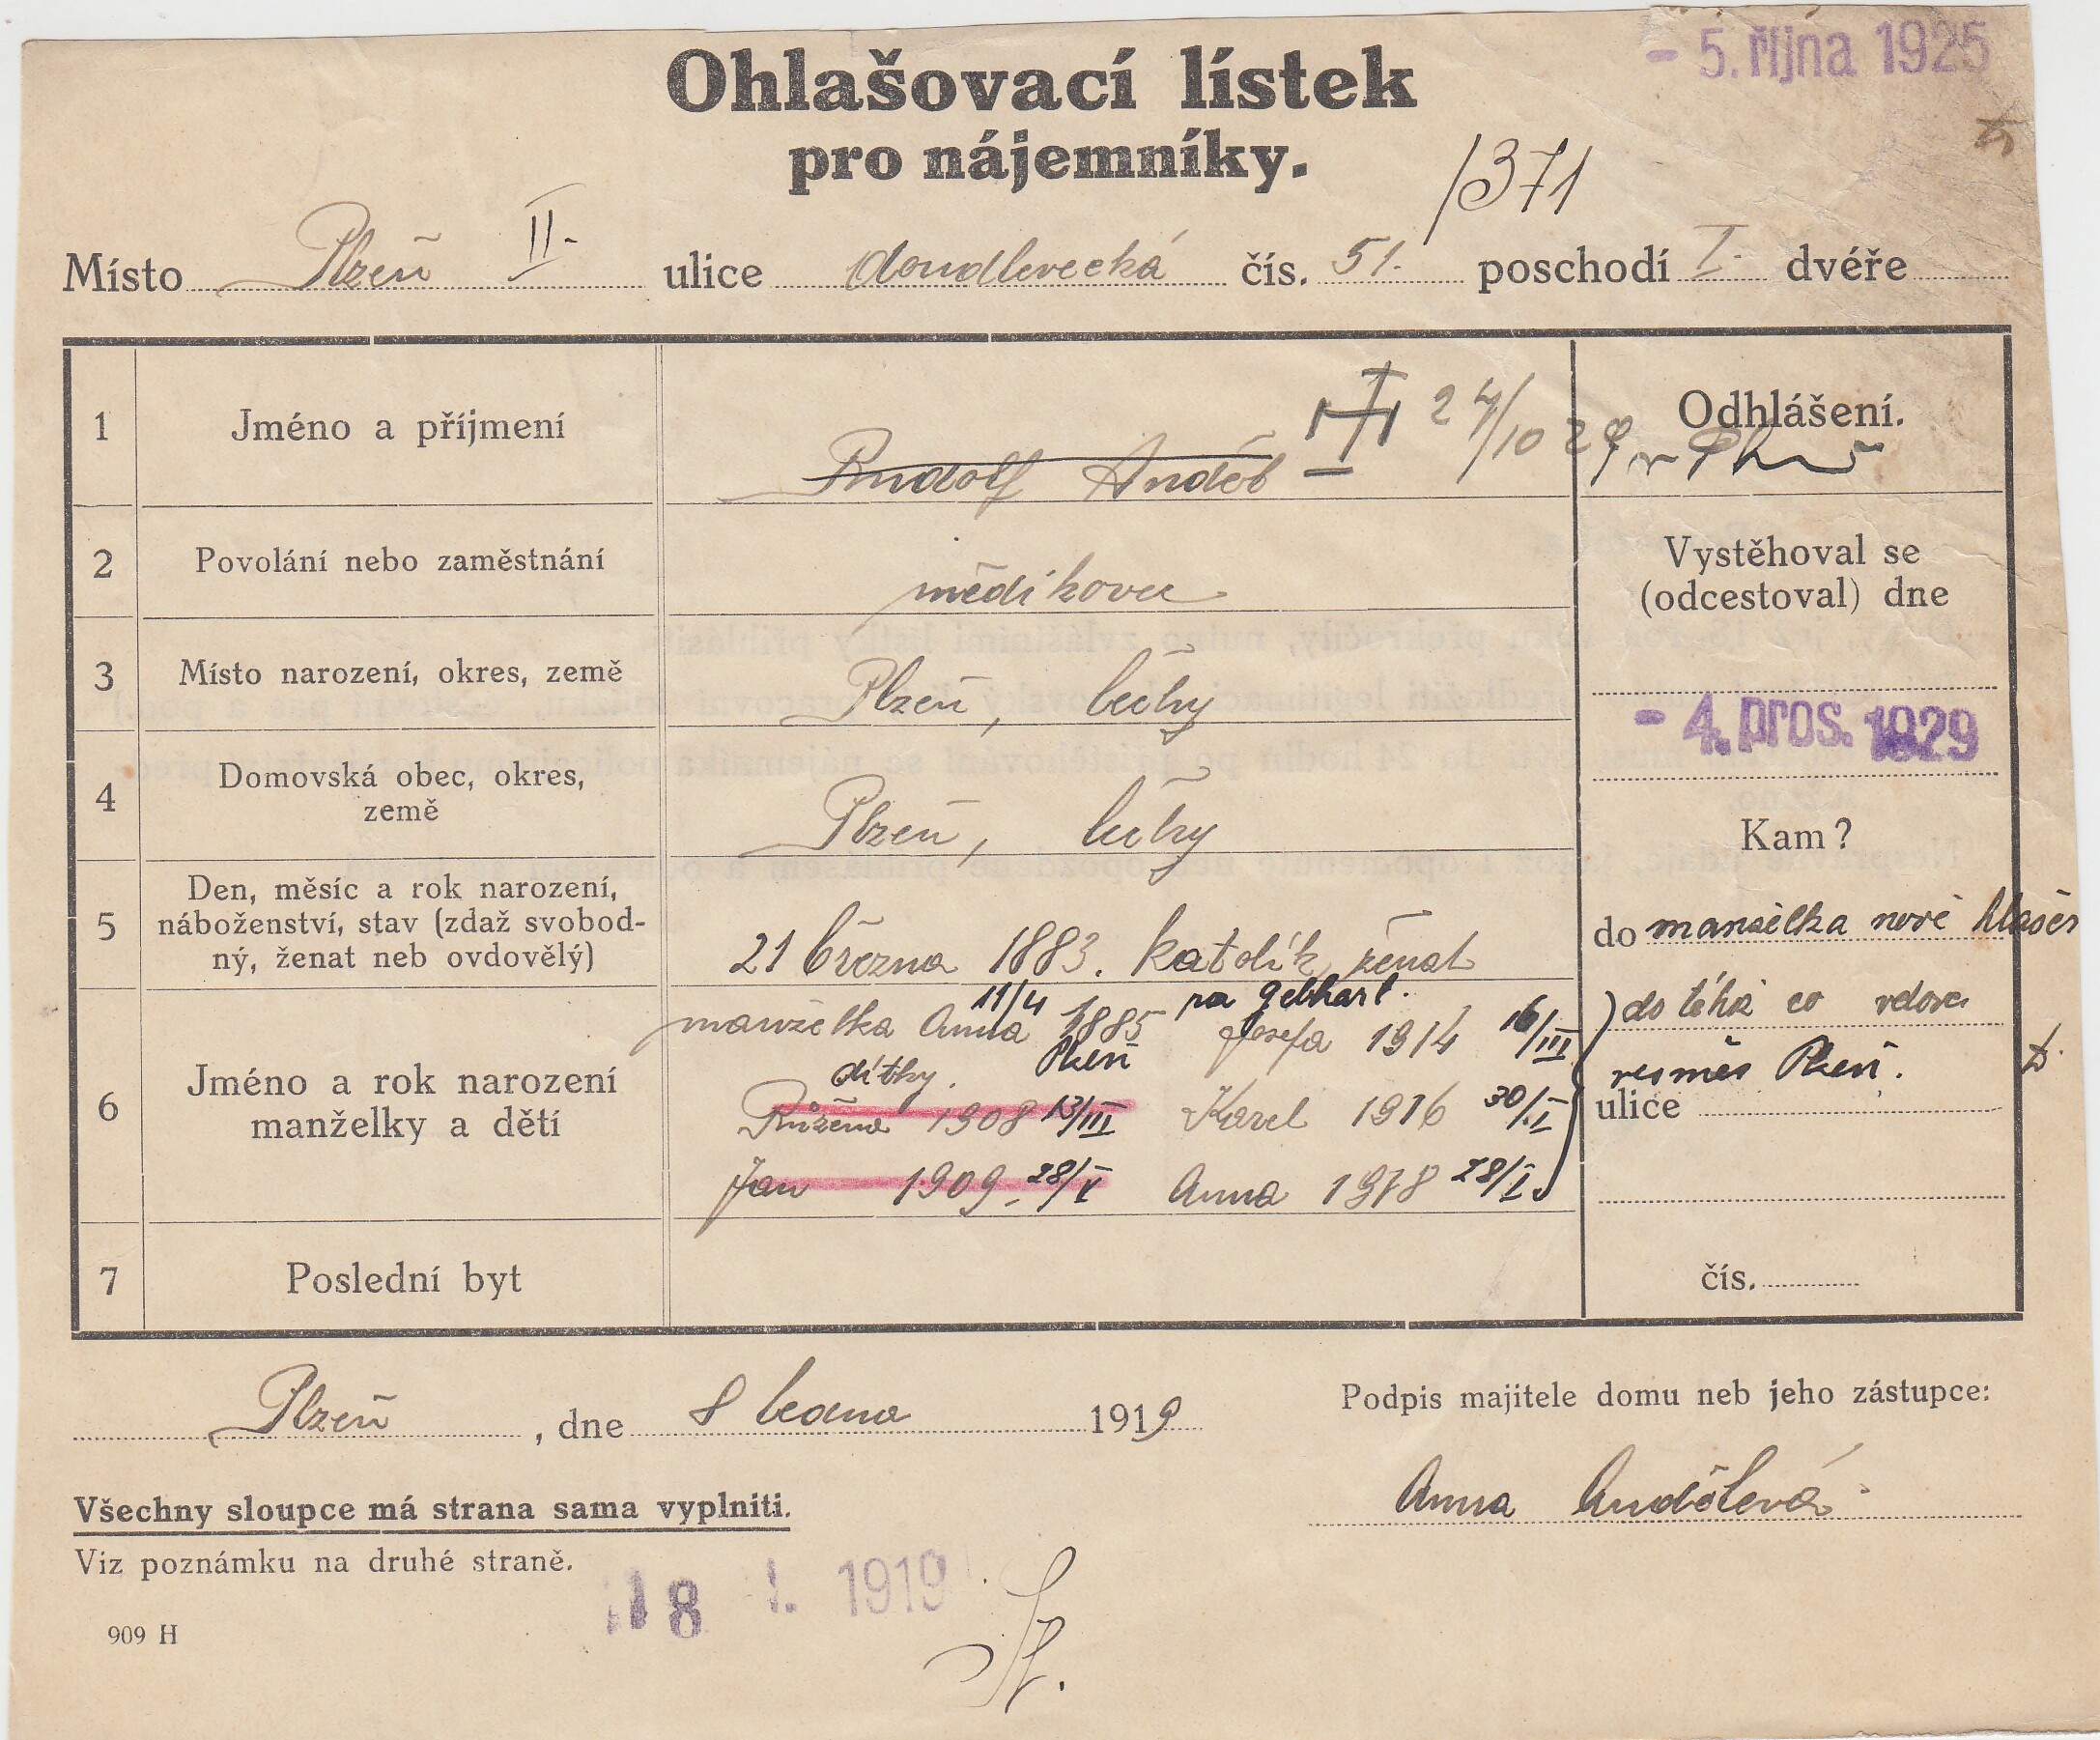 - 5. října 1925
Ohlašovací lístek
pro nájemníky.
/371
Místo Plzeň II. ulice doudlevecká čís. 51. poschodí I. dvéře
1 Jméno a příjmení Rudolf Anděl 24/10 29 v Plzni
Odhlášení.
2 Povolání nebo zaměstnání
Vystěhoval se
(odcestoval) dne
3 Místo narození, okres, země Plzeň, Čechy
- 4. pros. 1929
4 Domovská obec, okres,
země
Plzeň, Čechy
Kam?
5 Den, měsíc a rok narození,
náboženství, stav (zdaž svobod-
ný, ženat neb ovdovělý)
21 března 1883. katolík, ženat
do manželka nové
6 Jméno a rok narození
manželky a dětí
11/4 ra Gebhart.
manželka Anna 1885 Josefa 1914 16/III
dítky. Plzeň
Růžena 1908 13/III Karel 1916 30/I
Jan 1909 - 28/V Anna 1918 28/I
vesměs Plzeň.
ulice
7 Poslední byt
čís.
Plzeň, dne 8 ledna 1919
Podpis majitele domu neb jeho zástupce:
Anna Andělová
Všechny sloupce má strana sama vyplniti.
Viz poznámku na druhé straně.
18 I. 1919
909 H